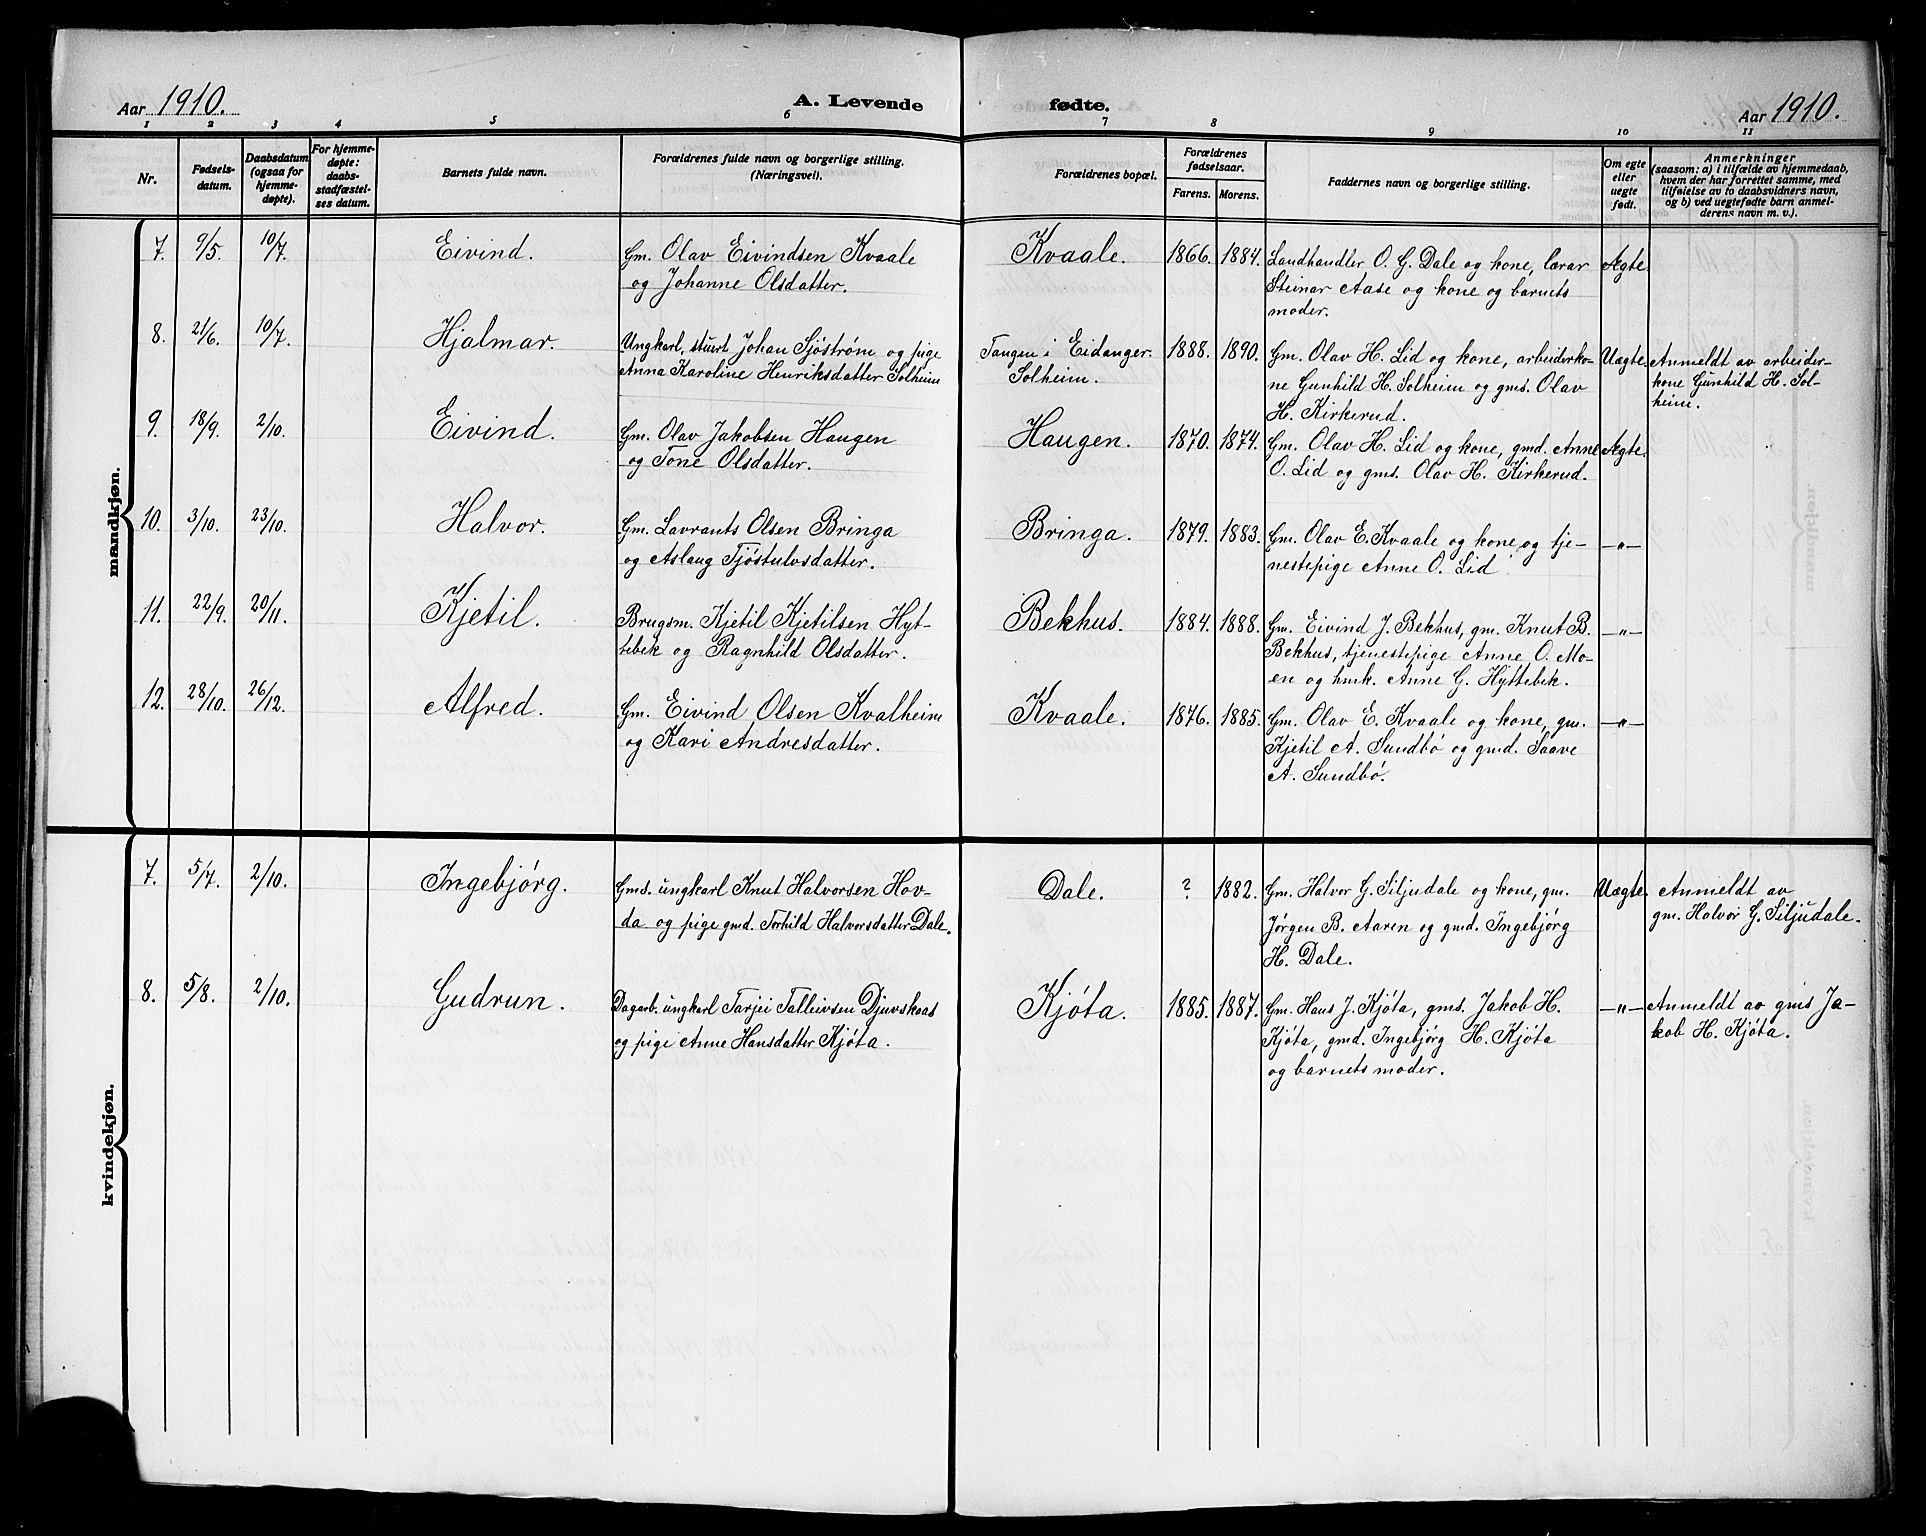 Aar 1910. A. Levende fødte. Aar 1910.
1 2 3 4 5 6 7 8 9 10 11
Nr.
Fødsels-
datum.
Daabsdatum
(ogsaa for
hjemme-
døpte).
For hjemme-
døpte:
daabs-
stadfæstel-
ses datum.
Barnets fulde navn.
Forældrenes fulde navn og borgerlige stilling.
(Næringsvei).
Forældrenes bopæl.
Forældrenes
fødselsaar.
Farens. Morens.
Faddernes navn og borgerlige stilling.
Om egte
eller
uegte
født.
Anmerkninger
(saasom: a) i tilfælde av hjemmedaab,
hvem der har forrettet samme, med
tilføielse av to daabsvidners navn,
og b) ved uegtefødte barn anmel-
derens navn m. v.).
mandkjøn.
7. 9/5. 10/7. Eivind. Gm. Olav Eivindsen Kvaale
og Johanne Olsdatter.
Kvaale. 1866. 1884. Landhandler O. G. Dale og kone, lærar
Steinar Aase og kone og barnets
moder.
Ægte.
8. 21/6. 10/7. Hjalmar. Ungkarl, stuert Johan Sjöström og pige
Anna Karoline Henriksdatter Solheim
Tangen i Eidanger.
Solheim.
1888. 1890. Gm. Olav H. Lid og kone, arbeiderko-
ne Gunhild H. Solheim og gms. Olav
H. Kirkerud.
Uægte. Anmeldt av arbeider-
kone Gunhild H. Sol-
heim.
9. 18/9. 2/10. Eivind. Gm. Olav Jakobsen Haugen
og Tone Olsdatter.
Haugen. 1870. 1874. Gm. Olav H. Lid og kone, gmd. Anne
O. Lid og gms. Olav H. Kirkerud.
Ægte.
10. 3/10. 23/10. Halvor. Gm. Lavrants Olsen Bringa
og Aslaug Tjöstulvsdatter.
Bringa. 1879. 1883. Gm. Olav E. Kvaale og kone og tje-
nestepige Anne O. Lid
—„—
11. 22/9. 20/11. Kjetil. Brugsm. Kjetil Kjetilsen Hyt-
tebek og Ragnhild Olsdatter.
Bekhus. 1884. 1888. Gm. Eivind J. Bekhus, gm. Knut B.
Bekhus, tjenestepige Anne O. Mo-
en og hmk. Anne G. Hyttebek.
—„—
12. 28/10. 26/12. Alfred. Gm. Eivind Olsen Kvalheim
og Kari Andresdatter.
Kvaale. 1876. 1885. Gm. Olav E. Kvaale og kone, gm.
Kjetil A. Sundbö og gmd. Saave
A. Sundbö.
—„—
kvindekjøn.
7. 5/7. 2/10. Ingebjörg. Gms. ungkarl Knut Halvorsen Hov-
da og pige gmd. Torhild Halvorsdatter Dale.
Dale. ? 1882. Gm. Halvor G. Siljudale og kone, gm.
Jörgen B. Aaren og gmd. Ingebjörg
H. Dale.
Uægte. Anmeldt av
gm. Halvor G. Siljudale.
8. 5/8. 2/10. Gudrun. Dagarb. ungkarl Tarjei Talleivsen Djuvskaas
og pige Anne Hansdatter Kjöta.
Kjöta. 1885. 1887. Gm. Hans J. Kjöta, gms. Jakob H.
Kjöta, gmd. Ingebjörg H. Kjöta
og barnets moder.
—„— Anmeldt av gms Ja-
kob H. Kjöta.